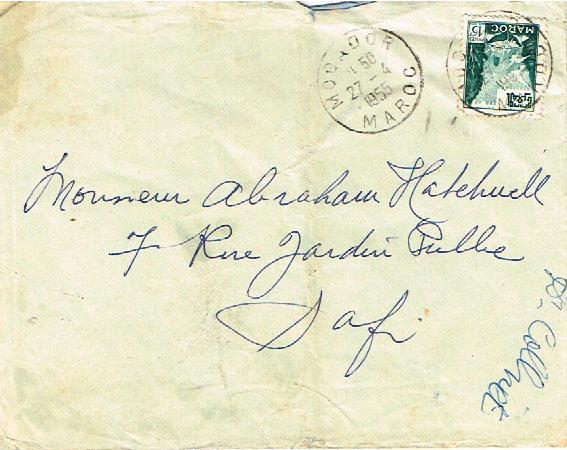 MOGADOR
1 50
27-4
1955
MAROC
MAROC
15
Monsieur Abraham Hatchwell
7 Rue Jardin Public
Safi